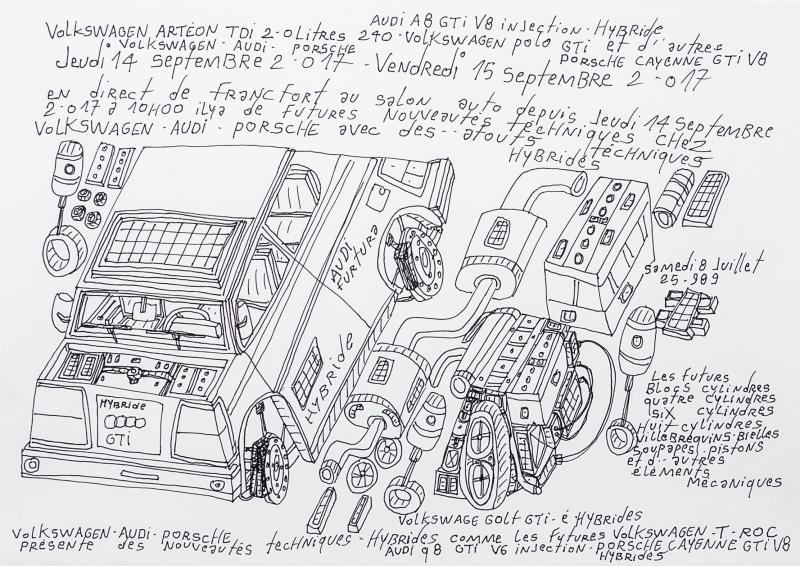 AUDI A8 GTi V8 injection-HYBRIDE
VOLKSWAGEN ARTÉON TDI 2.0 LITRES 240-VOLKSWAGEN POLO GTI et d''autres
VOLKSWAGEN-AUDI-PORSCHE
PORSCHE CAYENNE GTI V8
Jeudi 14 SeptembRe 2.017-VendRedi 15 SeptembRe 2.017
en direct de FRANCFORT au salon auto depuis Jeudi 14 Septembre
2.017 à 10H00 ilya de FUTURES NOUVEAUTÉS TECHNIQUES CHEZ
VOLKSWAGEN-AUDI-PORSCHE avec des--atouts TECHNIQUES
HYBRIDES
AUDI
FURTURA
HYBRIDE
HYBRIDE
GTi
samedi 8 Juillet
25.989
Les FUTURS
BLOCS CYLINDRES
quatre CYLINDRES
six CYLINDRES
Huit CYLINDRES
VILLEBREQUINS.Bielles
soupapes.pistons
et d''autres
éléments
MÉCANIQUES
VOLKSWAGE GOLT GTI-é HYBRIDES
VOLKSWAGEN-AUDI-PORSCHE
PRÉSENTE des NOUVEAUTÉS techniques-HYBRIDES comme Les FUTURES VOLKSWAGEN-T-ROC
AUDI q8 GTI V6 injection-PORSCHE CAYENNE GTI V8
HYBRIDES